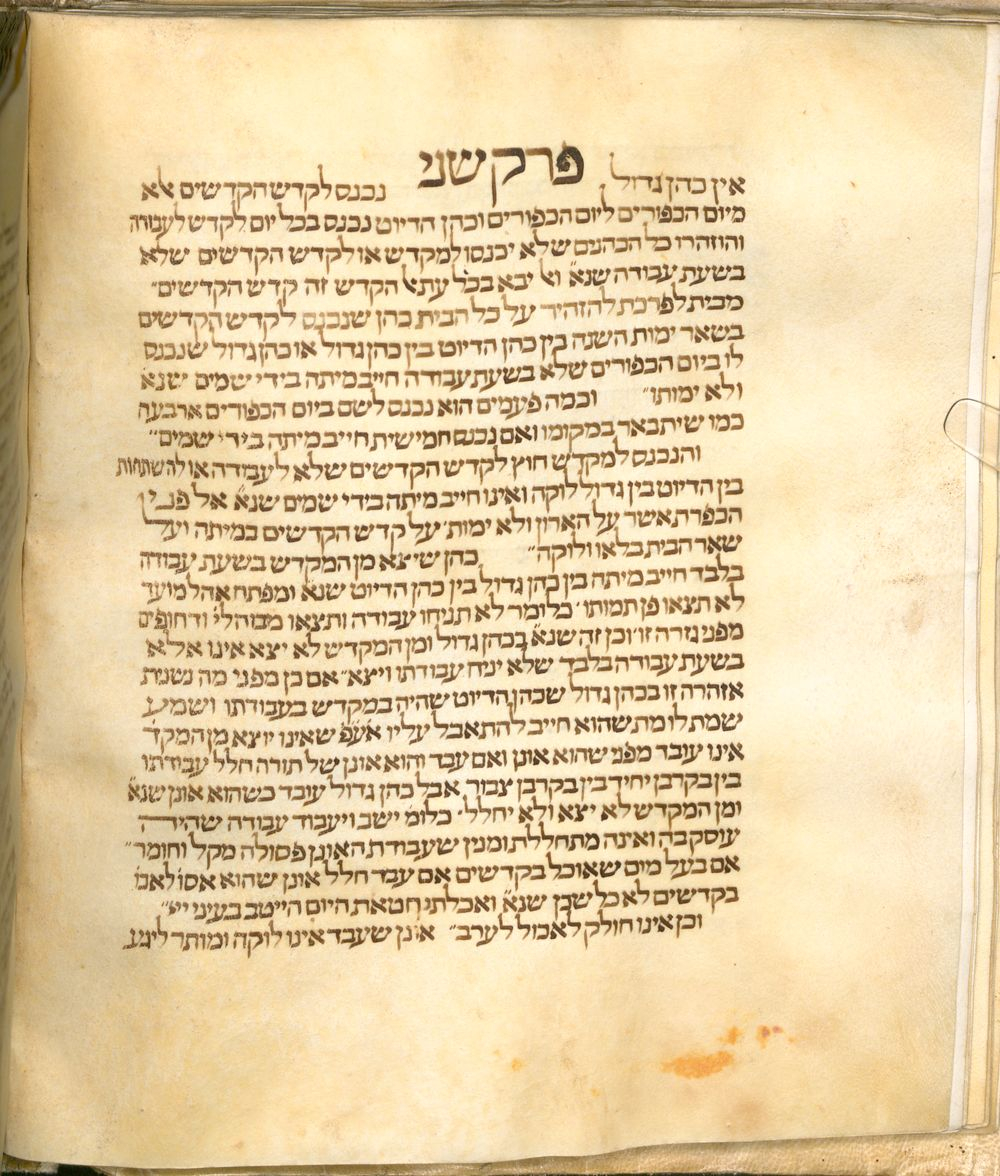 פרק שני
אין כהן גדול נכנס לקדש הקדשים אלא
מיום הכפורים ליום הכפורים וכהן הדיוט נכנס בכל יום לקדש לעבודה
והוזהרו כל הכהנים שלא יכנסו למקדש או לקדש הקדשים שלא
בשעת עבודה שנא׳ ואל יבא בכל עת אל הקדש זה קדש הקדשים״
מבית לפרכת להזהיר על כל הבית כהן שנכנס לקדש הקדשים
בשאר ימות השנה בין כהן הדיוט בין כהן גדול או כהן גדול שנכנס
לו ביום הכפורים שלא בשעת עבודה חייב מיתה בידי שמים שנא׳
ולא ימותו״ וכמה פעמים הוא נכנס לשם ביום הכפורים ארבעה
כמו שיתבאר במקומו ואם נכנס חמישית חייב מיתה בידי שמים״
והנכנס למקדש חוץ לקדש הקדשים שלא לעבודה או להשתחות
בין הדיוט בין גדול לוקה ואינו חייב מיתה בידי שמים שנא׳ אל פני
הכפרת אשר על הארון ולא ימות׳ על קדש הקדשים במיתה ועל
שאר הבית בלאו ולוקה״ כהן שיצא מן המקדש בשעת עבודה
בלבד חייב מיתה בין כהן גדול בין כהן הדיוט שנא׳ ומפתח אהל מועד
לא תצאו פן תמותו׳ כלומר לא תניחו עבודה ותצאו מבוהלי׳ ודחופים
מפני גזרה זו׳ וכן זה שנא׳ בכהן גדול ומן המקדש לא יצא אינו אלא
בשעת עבודה בלבד שלא יניח עבודתו ויצא״ אם כן מפני מה נשנית
אזהרה זו בכהן גדול שכהן הדיוט שהיה במקדש בעבודתו ושמע
שמת לו מת שהוא חייב להתאבל עליו אע״פ שאינו יוצא מן המקד
אינו עובד מפני שהוא אונן ואם עבד והוא אונן של תורה חלל עבודתו
בין בקרבן יחיד בין בקרבן צבור אבל כהן גדול עובד כשהוא אונן שנא׳
ומן המקדש לא יצא ולא יחלל׳ כלומ׳ ישב ויעבוד עבודה שהיה
עוסק בה ואינה מתחללת ומנין שעבודת האונן פסולה מקל וחומר״
אם בעל מום שאוכל בקדשים אם עבד חלל אונן שהוא אסו׳ לאכו׳
בקדשים לא כל שכן שנא׳ ואכלתי חטאת היום הייטב בעיני ייי״
וכן אינו חולק לאכול לערב״ אונן שעבד אינו לוקה ומותר ליגע